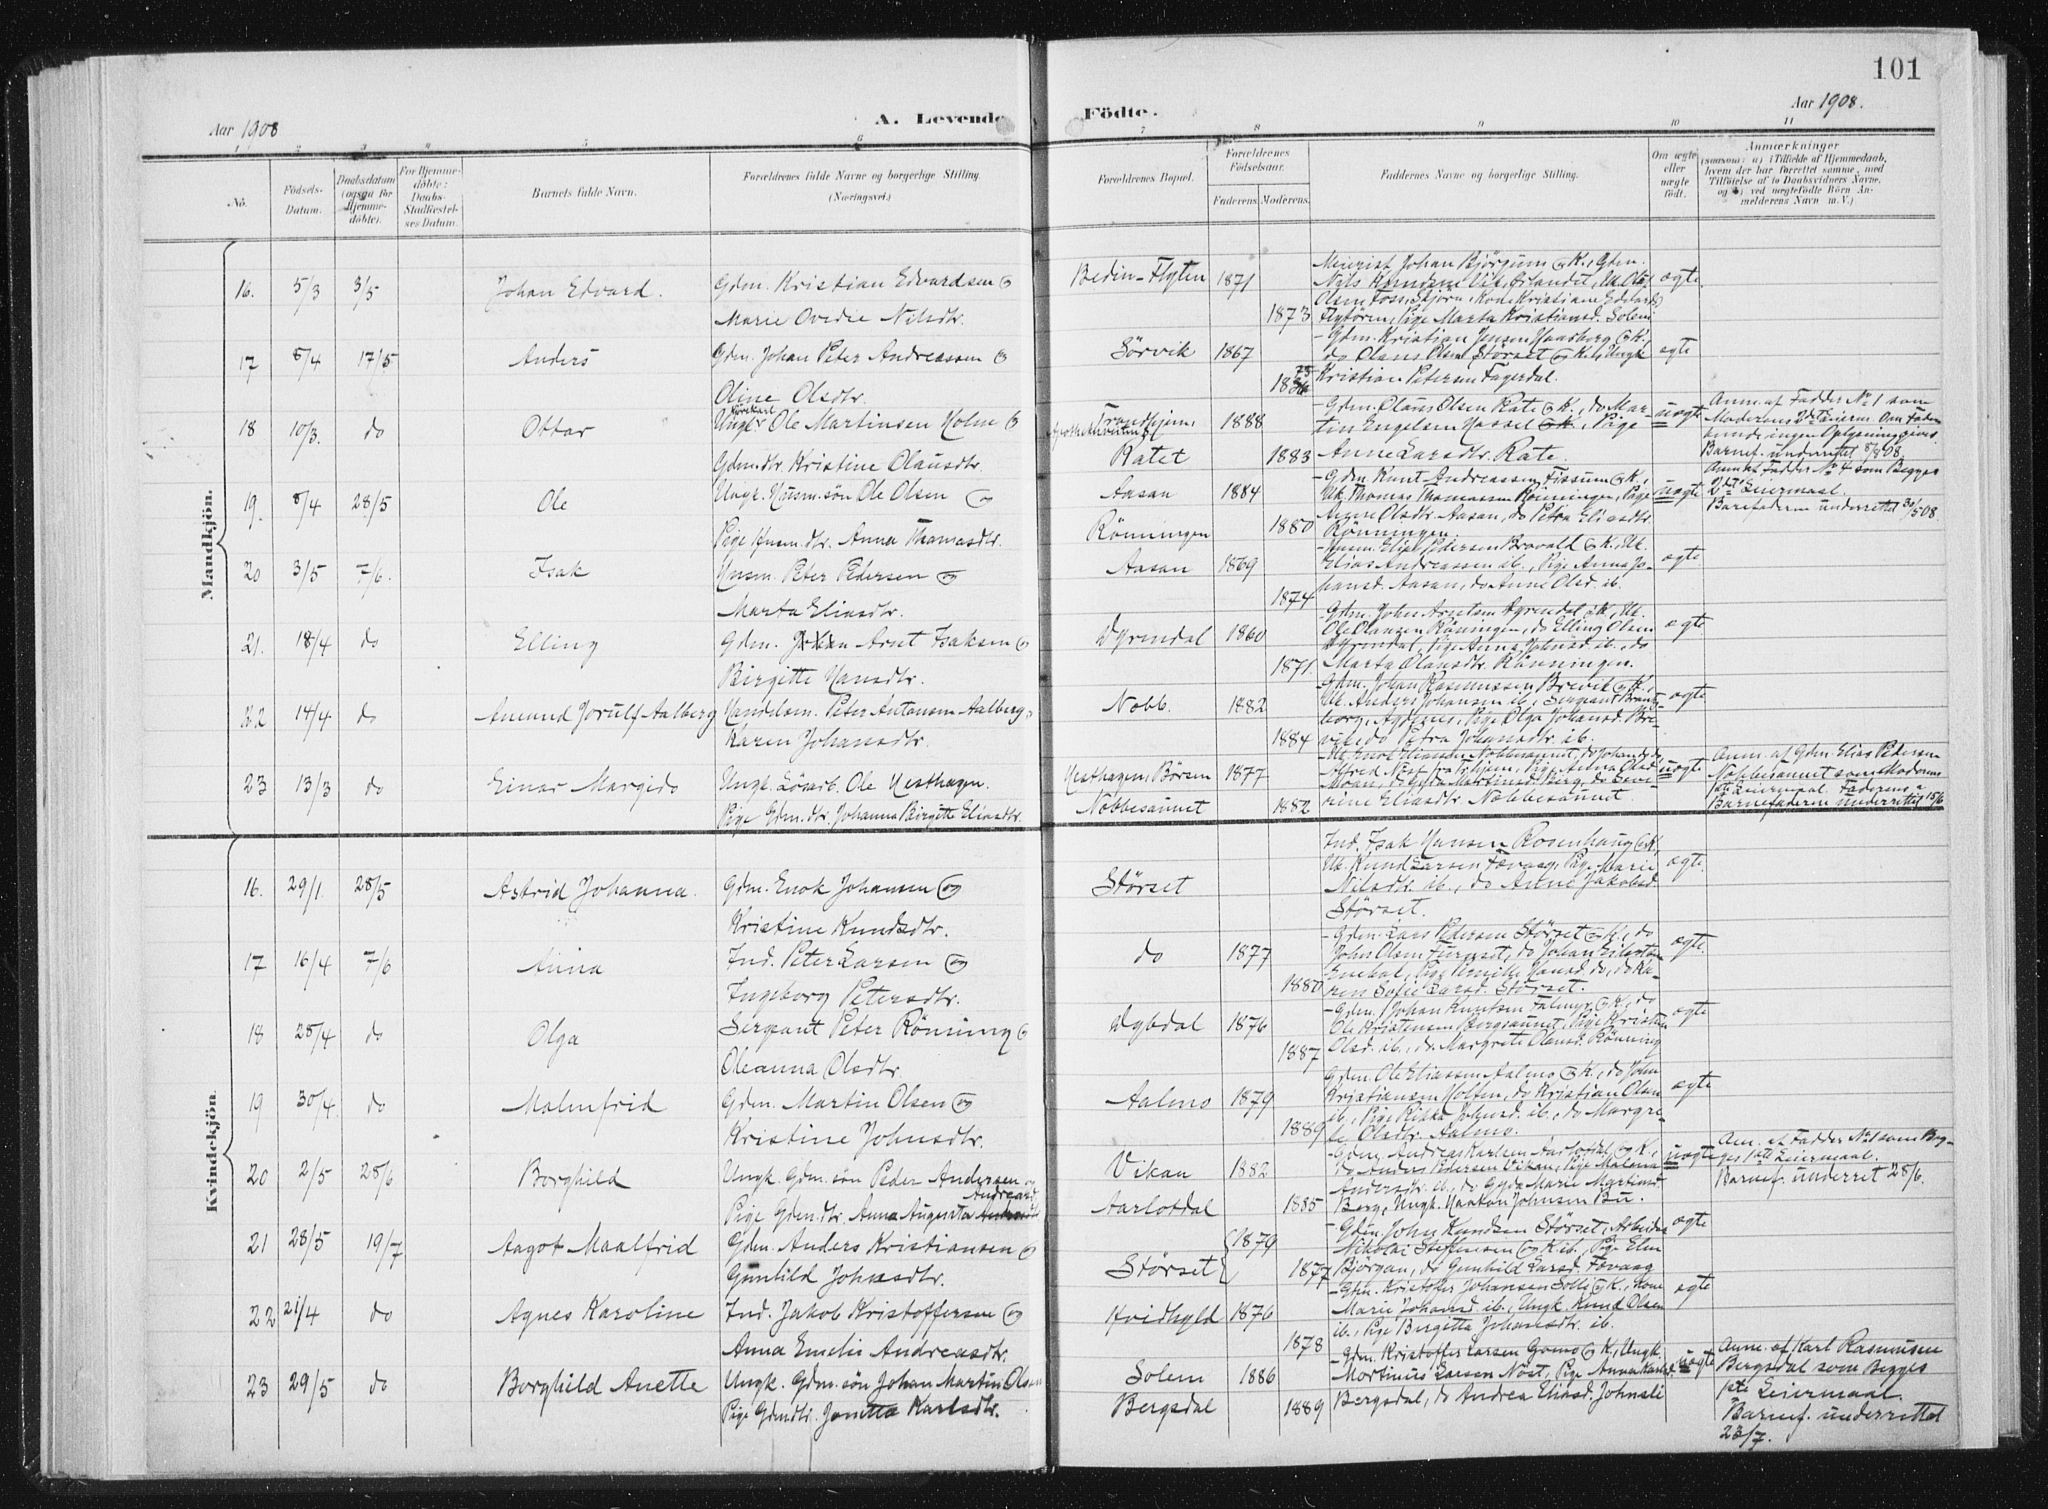 101
Aar 1908
A. Levende
Födte.
Aar 1908.
1 2 3 4 5 6 7 8 9 10 11
No.
Födsels-
Datum.
Daabsdatum
(ogsaa for
Hjemme-
döbte).
For Hjemme-
döbte:
Daabs-
Stadfæstel-
ses Datum.
Barnets fulde Navn.
Forældrenes fulde Navne og borgerlige Stilling
(Næringsvei.)
Forældrenes Bopæl.
Forældrenes
Födselsaar.
Faderens. Moderens.
Faddernes Navne og borgerlige Stilling.
Om ægte
eller
uægte
født.
Anmærkninger
(saasom: a) i Tilfælde af Hjemmedaab,
hvem der har forrettet samme, med
Tilföielse af to Daabsvidners Navne,
og b) ved uægtefödte Börn An-
melderens Navn m. V.)
Mandkjön.
16. 5/3 3/5 Johan Edvard. Gdm. Kristian Edvardsen og
Marie Ovedie Nilsdtr.
Bedin-Flyten 1871
1873
Meierist Johan Björgum og K., Gdm.
Flytören, Pige Marta Kristiansd. Solem
ægte
17 8/4 17/5 Anders Gdm. Johan Peter Andreassen og
Oline Olsdtr.
Sörvik 1867
- Gdm. Kristian Jensen Haasberg og K.
do Olaus Olsen Störset og K., Ungk.
Kristian Petersen Fagerdal.
ægte
18 10/3. do Ottar Ungk. Ole Martinsen Holm og
Gdm.dtr. Kristine Olausdtr.
Trondhjem, 1888
Ratet 1883
- Gdm. Olaus Olsen Rate og K., do Mar-
tin Engelsen Hassel og K., Pige
Anne Larsdtr. Rate.
uægte
Anm. af Fadder No 1 som
Moderens 2det Leierm. Om Faderen
kunde ingen Oplysning gives.
Barnef. underrettet 8/8 08.
19. 8/4 28/5 Ole Ungk. Husm.sön Ole Olsen og
Pige Husm.dtr. Anna Thomasdtr.
Aasan 1884
Rönningen 1880
- Gdm. Knut Andreassen Fissum og K.,
Uk. Thomas Thomassen Rönningen, Pige
Anne Olsdtr. Aasan, do Petra Eliasdtr.
Rönningen.
uægte
Anm. af Fadder No 4 som Begges
2det Leiermaal.
Barnefaderen underrettet 30/5 08.
20 3/5 7/6. Isak Husm. Peter Pedersen og
Marta Eliasdtr.
Aasan 1869
1874
- Husm. Elias Pedersen Brovold og K., Uk.
Elias Andreassen ib., Pige Anna Jo-
hansd. Aasan, do Anne Olsd. ib.
ægte
21. 18/4 do Elling Gdm. Johan Arnt Isaksen og
Birgitte Hansdtr.
Dyrendal 1860
1871.
- Gdm. John Arntsen Dyrendal og K., Uk.
Ole Olausen Rönningen, do Elling Olsen
Dyrendal, Pige Anna Johnsd. ib., do
Marta Olausdtr. Rönningen.
ægte
22 14/4 do Amund Jorulf Aalberg Handelsm. Peter Antonsen Aalberg,
Karen Johansdtr.
Nobb. 1882
1884
- Gdm. Johan Rasmussen Brevik og K.,
Uk. Anders Johansen ib., Sergeant Brandt
borg, Agdenes, Pige Olga Johansd. Bre-
vik, do Petra Johansdtr. ib.
ægte
23 13/3 do Einar Margido Ungk. Löiarb. Ole Vesthagen.
Pige Gdm.dtr. Johanna Birgitte Eliasdtr.
Vesthagen, Börsen 1877
Nobbesaunet 1882
rine Eliasdtr. Nobbesaunet.
uægte
Anm. af Gdm. Elias Pedersen
Nobbesaunet som Moderens
1ste Leiermaal. Faderens "
Barnefaderen underrettet 15/6
Kvindekjön.
16. 29/1. 28/5 Astrid Johanna. Gdm. Enok Johansen og
Kristine Knudsdtr.
Störset
Ind. Isak Hansen Rosenhaug og K.,
Uk. Knud Larsen Fovaag, Pige Marie
Nilsdtr. ib., do Anne Jakobsd.
Störset.
ægte.
17 16/4 7/6 Anna Ind. Peter Larsen og
Ingeborg Petersdtr.
do 1877
1880
- Gdm. Lars Pedersen Störset og K., do
John Olsen Furuset, do Johan Eilertsen
ren Sofie Larsd. Störset.
ægte.
18 28/4 do Olga Sergeant Peter Rönning og
Oleanna Olsdtr.
Dybdal 1876
1887
- Gdm. Johan Knutsen Falmyr og K., do
Ole Kristensen Bergsaunet, Pige Kristin
Olsd. ib., do Margrete Olausd. Rönning
ægte
19 30/4. do Malmfrid Gdm. Martin Olsen og
Kristine Johnsdtr.
Aalmo 1879
1889
Gdm. Ole Eliassen Aalmo og K., do John
Kristiansen Holten, do Kristian Olsen
ib., Pige Rikka Johnsd. ib., do Margre-
te Olsdtr. Aalmo.
ægte
20 2/5 28/6 Borghild Ungk. Gdm.sön Peder Andersen og
Pige Gdm.dtr. Anna Augusta Andreasd.
Vikan 1882
Aarlotdal 1885
- Gdm. Andreas Karlsen Aarlotdal og K.,
do Anders Pedersen Vikan, Pige Malena
Andersdtr. ib., do Gyda Marie Martinsd.
Berg, Ungk. Haakon Johnsen Bu.
uægte
Anm. af Fadder No 1 som Beg-
ges 1ste Leiermaal.
Barnef. underret. 28/6.
21 28/5 19/7 Aagot Maalfrid Gdm. Anders Kristiansen og
Gunhild Johnsdtr.
Störset 1879
1877
- Gdm. John Knudsen Störset, Arbeider
Nikolai Steffensen og K. ib., Pige Elen
Björgan, do Gunhild Larsd. Fovaag
ægte
22 21/4 do Agnes Karoline Ind. Jakob Kristoffersen og
Anna Emelie Andreasdtr.
Hvidhyld 1876
1878
- Gdm. Kristofer Johansen Solli og K., Kone
Marie Johansd. ib., Ungk. Knud Olsen
ib., Pige Birgitta Johansdtr. ib.
ægte
23 29/5 do Borghild Anette Ungk. Gdm.sön Johan Martin Olsen
Pige Gdmdtr. Jonetta Karlsdtr.
Solem 1886
Bergsdal 1889
- Gdm. Kristoffer Larsen Gomo og K., Ungk.
Mortinus Larsen Nöst, Pige Anna Karlsd.
Bergsdal, do Andrea Eliasd. Johnsli
uægte
Anm. af Karl Rasmussen
Bergsdal som Begges
1ste Leiermaal.
Barnef. underrettet
23/7.